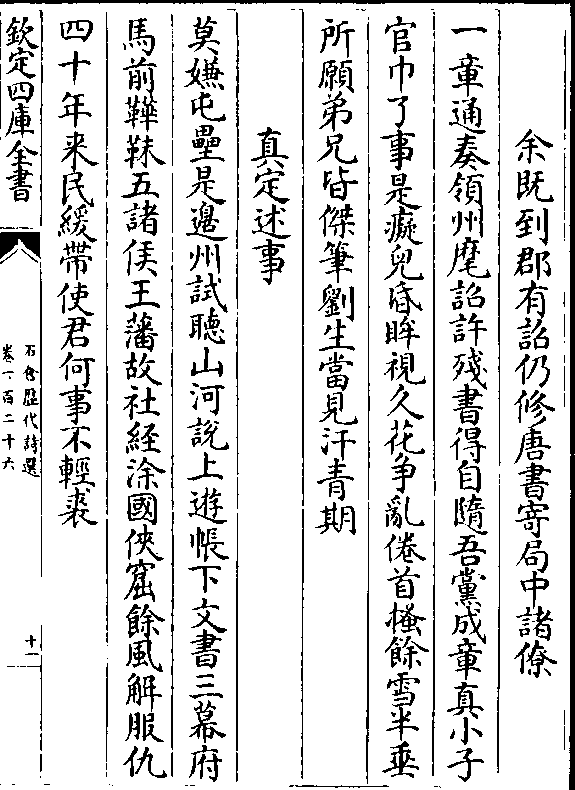 余既到郡有詔仍修唐書寄局中諸僚
一章通奏領州麾詔許殘書得自隨吾黨成章真小子
官巾了事是癡兒昏眸視久花争亂倦首搔餘雪半垂
所願弟兄皆傑筆劉生當見汗青期
真定述事
莫嫌屯壘是邉州試聽山河說上遊帳下文書三幕府
馬前鞾靺五諸侯王藩故社經涂國俠窟餘風解服仇
四十年来民緩帶使君何事不輕裘
欽定四庫全書
石倉歴代詩選
卷一百二十六
十一